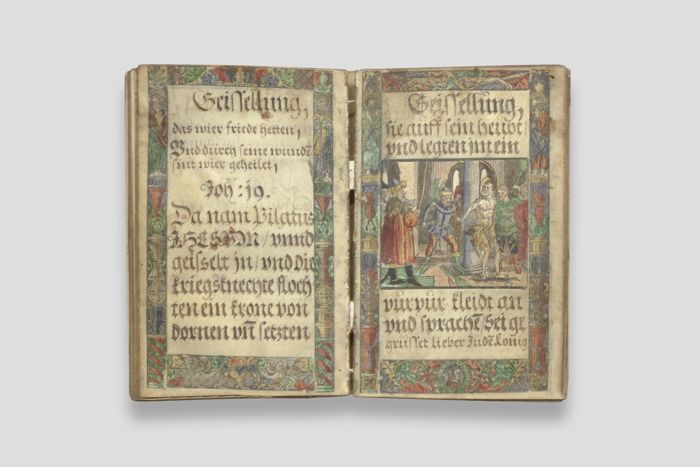 Geissellung,
das wier friede hetten,
Vnd durch seine wundē
sint wier geheilet,
Joh: 19.
Da nam Pilatus
JHESVM / vnnd
geisselt jn / vnd die
kriegsknechte floch
ten ein krone von
dornen vñ setzten
Geissellung,
sie auff sein heubt /
vnd legten jm ein
purpur kleidt an
vnd sprachē Sei ge
grüsset lieber Judē König